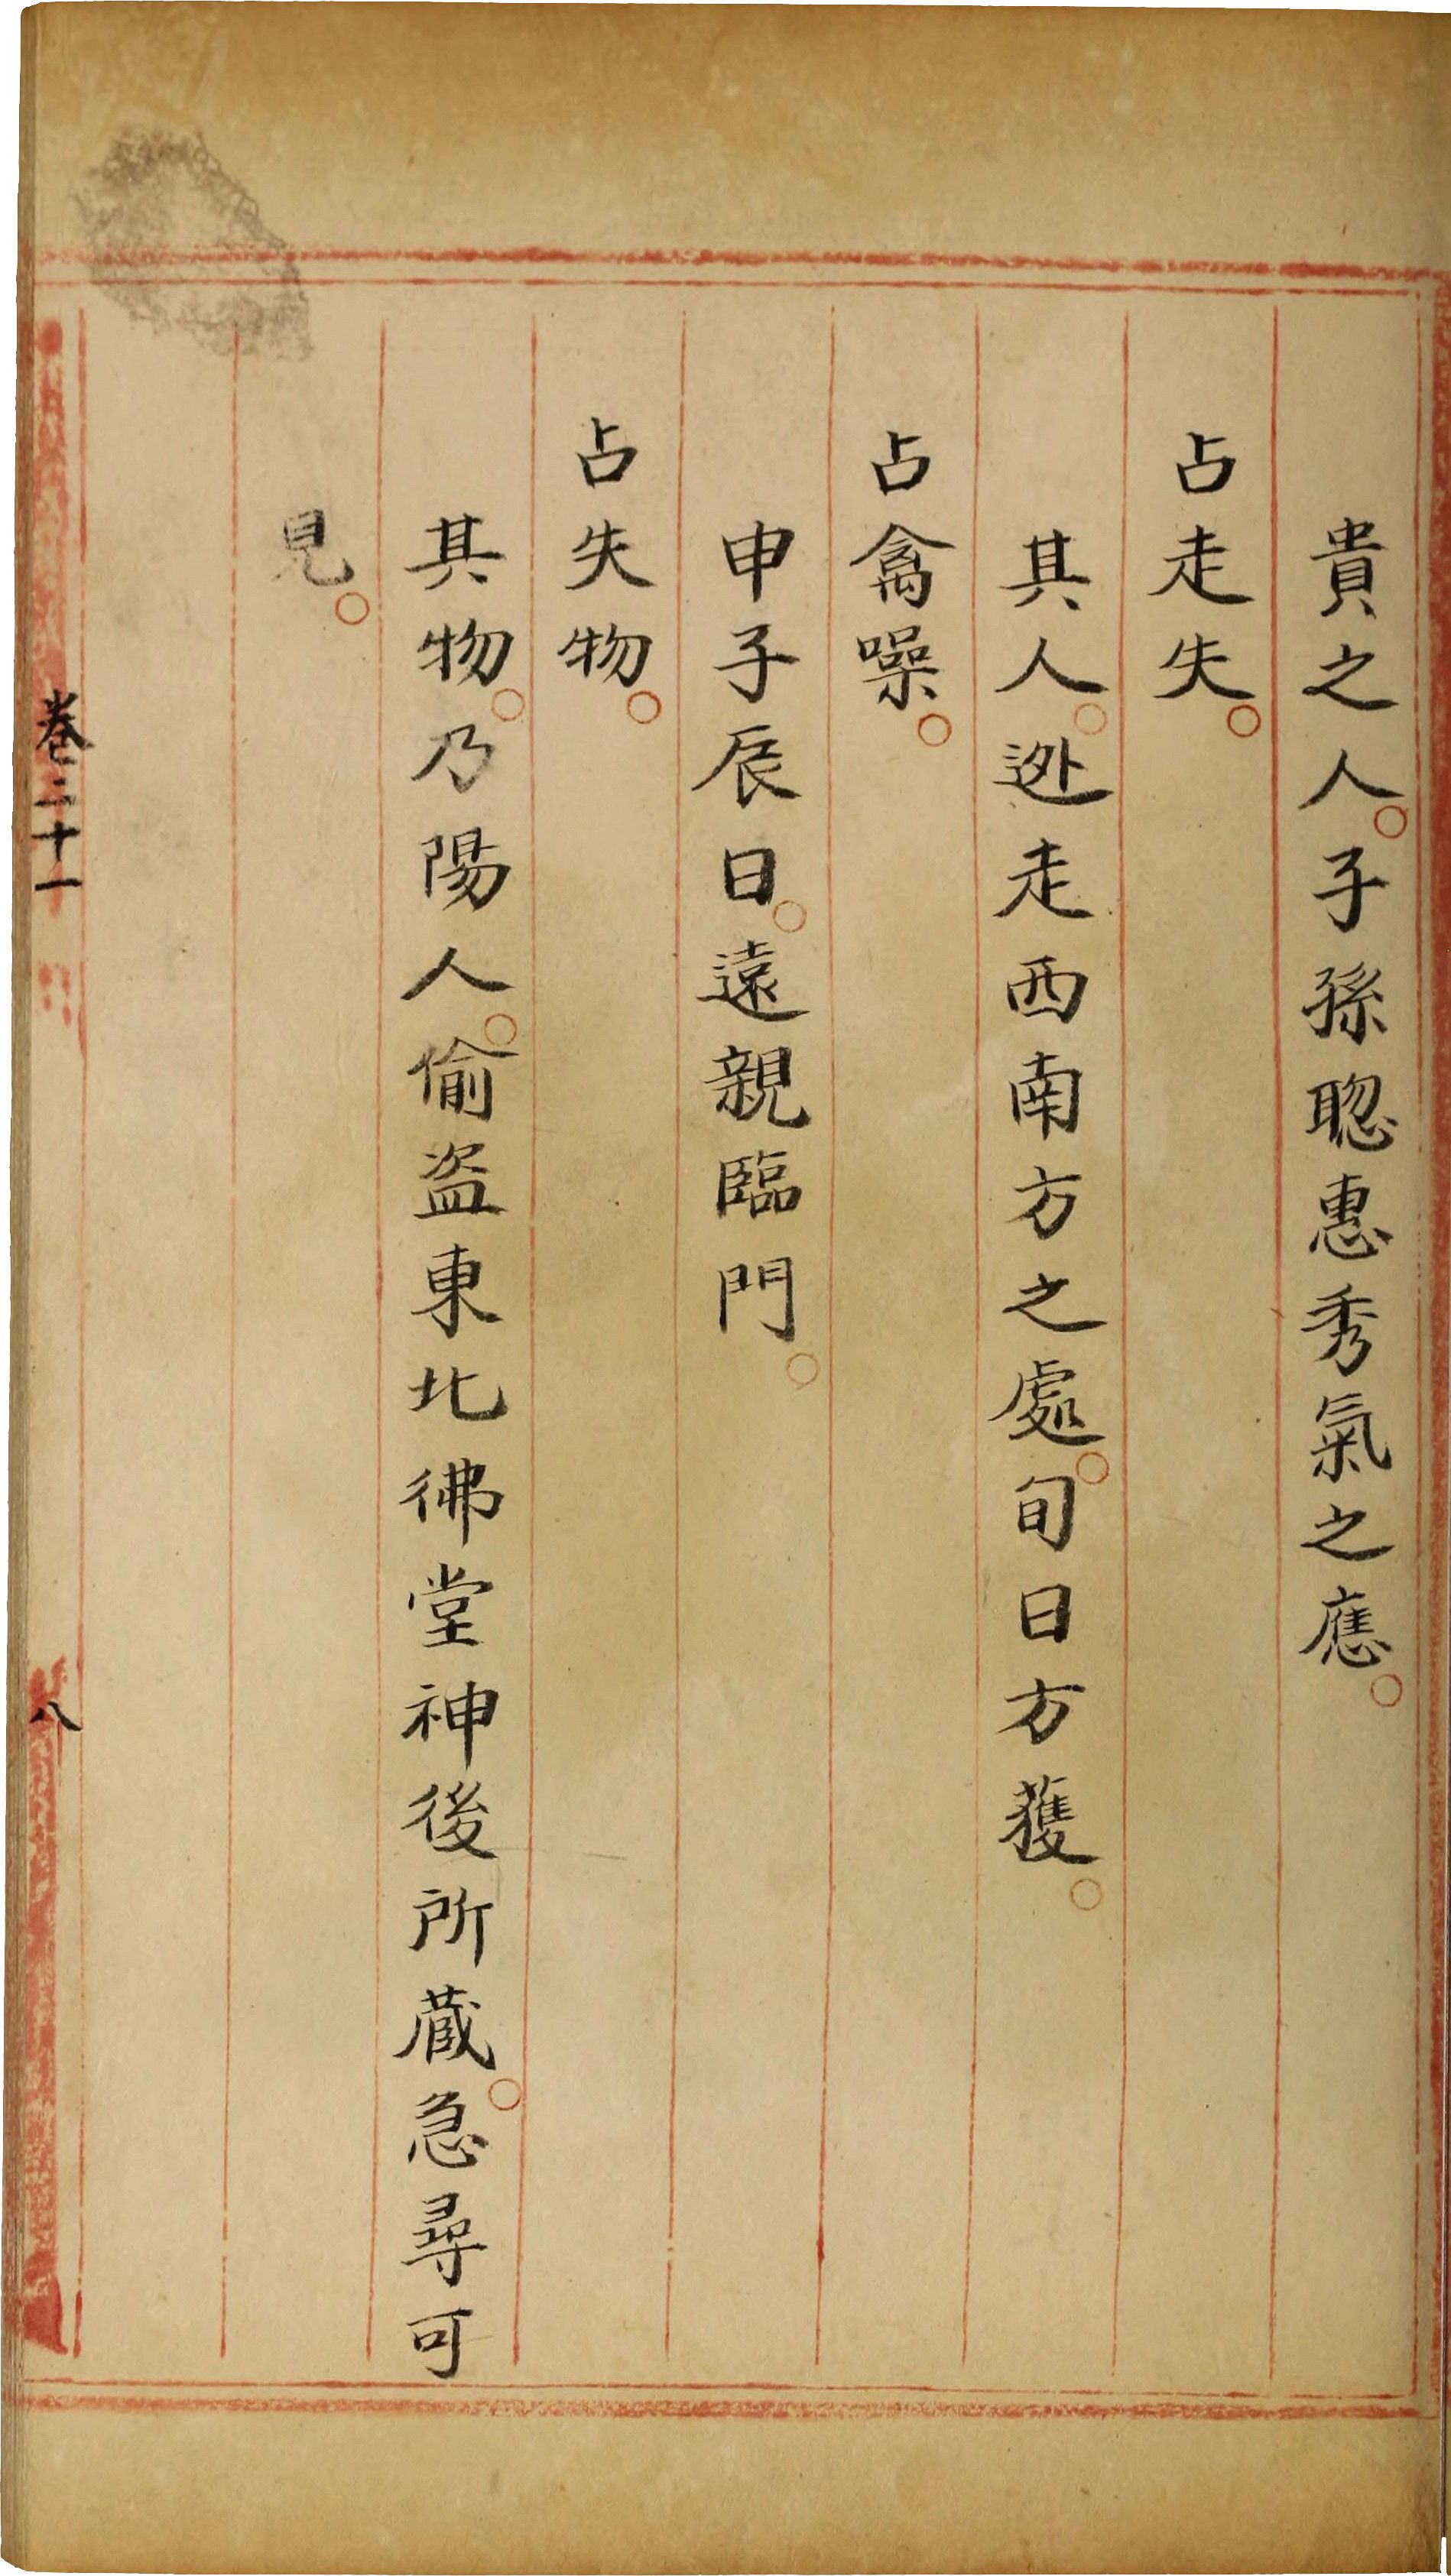 貴之人。子孫聦惠秀氣之應。
占走失。
其人。迯走西南方之處。旬日方獲。
占禽噪。
申子辰日。遠親臨門。
占失物。
其物。乃陽人。偷盗東北彿堂神後所蔵。急尋可
見。
卷二十一
八